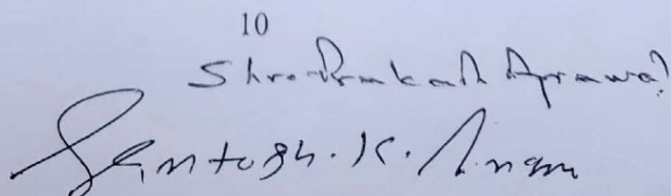 10
Shree Prakash Agrawal
Santosh. K.